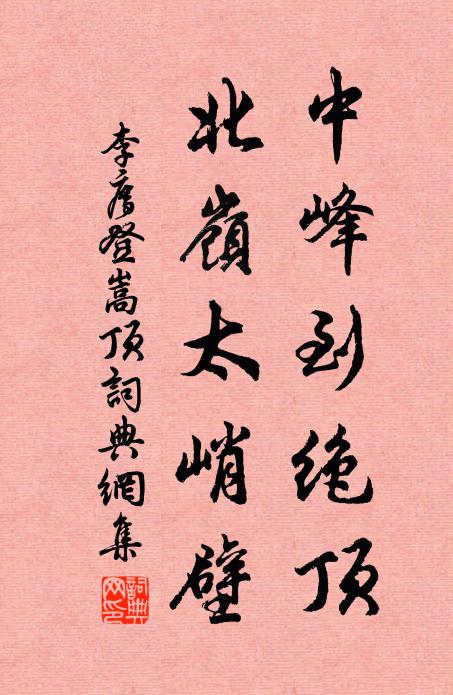 中峰到绝顶
北嶺太峭壁
李廌登嵩顶詞典網集
詞典
网印